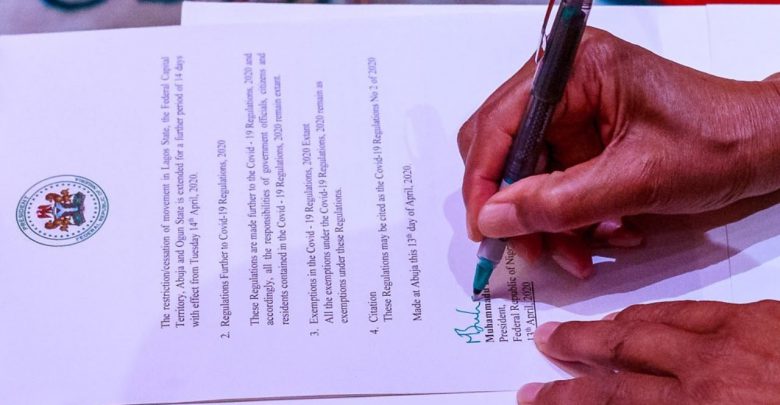 The restriction/cessation of movement in Lagos State, the Federal Capital
Territory, Abuja and Ogun State is extended for a further period of 14 days
with effect from Tuesday 14th April, 2020.
2. Regulations Further to Covid-19 Regulations, 2020
These Regulations are made further to the Covid - 19 Regulations, 2020 and
accordingly, all the responsibilities of government officials, citizens and
residents contained in the Covid - 19 Regulations, 2020 remain extant.
3. Exemptions in the Covid - 19 Regulations, 2020 Extant
All the exemptions under the Covid-19 Regulations, 2020 remain as
exemptions under these Regulations.
4. Citation
These Regulations may be cited as the Covid-19 Regulations No 2 of 2020
Made at Abuja this 13th day of April, 2020.
MBuh
Muhammadu
President,
Federal Republic of Nige
13th April, 2020